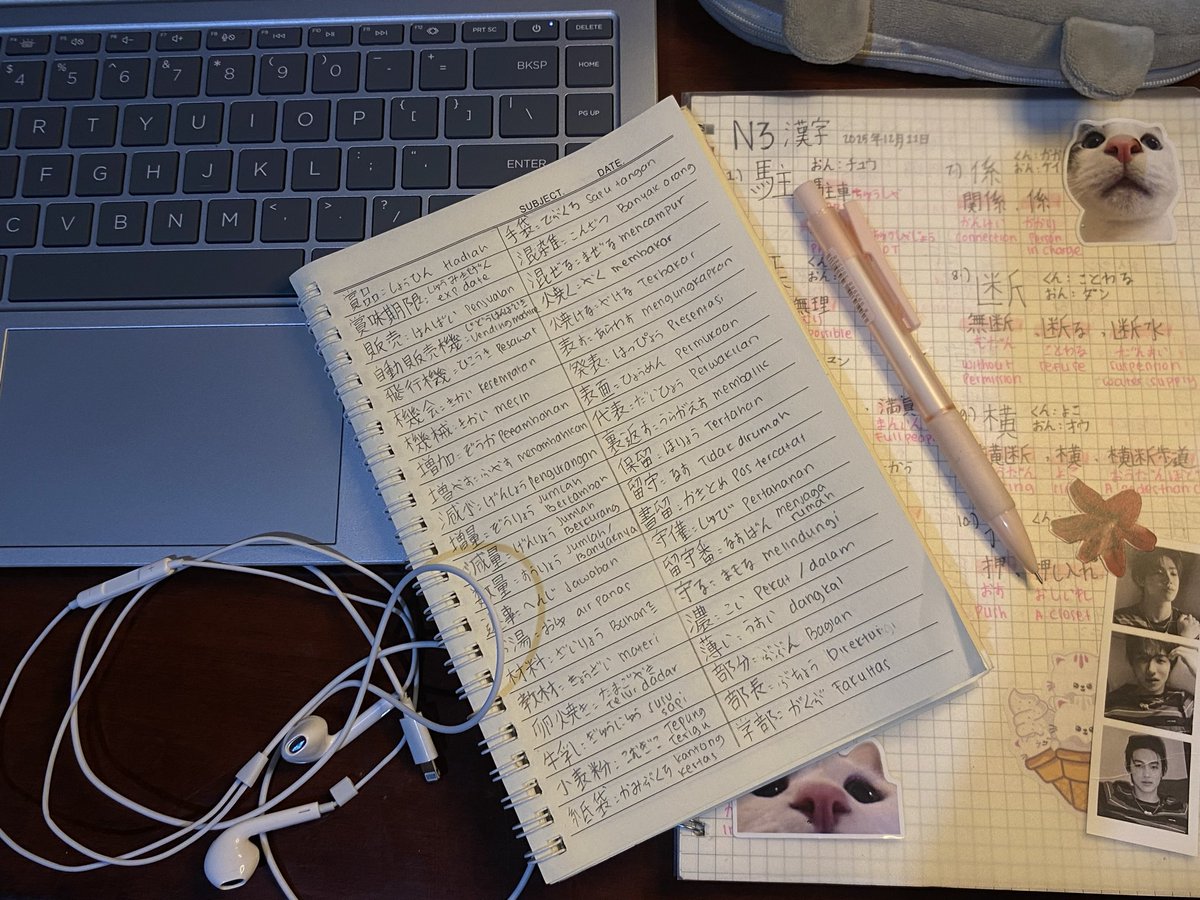 PRT SC
DELETE
$ 4
% 5
^ 6
& 7
* 8
( 9
) 0
_ -
+ =
BKSP
HOME
R T Y U I O P { [ } ] | \
PG UP
F G H J K L : ; " '
ENTER
C V B N M < , > . ? /
SUBJECT
DATE
賞品: しょうひん Hadiah
賞味期限: しょうみきげん exp date
販売: はんばい Penjualan
自動販売機: じどうはんばいき vending machine
飛行機: ひこうき Pesawat
機会: きかい kesempatan
機械: きかい mesin
増加: ぞうか Penambahan
増やす: ふやす menambahkan
減少: げんしょう Pengurangan
増量: ぞうりょう Jumlah Bertambah
減量: げんりょう Jumlah Berkurang
量: りょう Jumlah/Banyaknya
事: へんじ Jawaban
湯: おゆ air panas
材料: ざいりょう Bahan²
教材: きょうざい materi
卵焼き: たまごやき Telur dadar
牛乳: ぎゅうにゅう susu sapi
小麦粉: こむぎこ Tepung Terigu
紙袋: かみぶくろ kantong kertas
手袋: てぶくろ Saru tangan
混雑: こんざつ Banyak orang
混ぜる: まぜる mencampur
焼く: やく membakar
焼ける: やける Terbakar
表す: あらわす mengungkapkan
発表: はっぴょう Presentasi
表面: ひょうめん Permukaan
代表: だいひょう Perwakilan
裏返す: うらがえす membalik
保留: ほりゅう Tertahan
留守: るす Tidak dirumah
書留: かきとめ Pos tercatat
守備: しゅび Pertahanan
留守番: るすばん menjaga rumah
守る: まもる melindungi
濃い: こい Pekat / dalam
薄い: うすい dangkal
部分: ぶぶん Bagian
部長: ぶちょう Direktur
学部: がくぶ Fakultas
N3 漢字 2025年12月22日
1) 駐
おん: チュウ
駐車
ちゅうしゃ
無理
満員
まんいん
Full peop
7) 係
関係 . 係
かんけい かかり
connection Person
in charge
8) 断
くん: ことわる
おん: ダン
無断 . 断る . 断水
むだん ことわる だんすい
without refuse suspention
Permission water supply
9) 横
くん: よこ
おん: オウ
横断 . 横 . 横断歩道
10)
くん:
押す 押し入れ
おす おしいれ
Push A closet